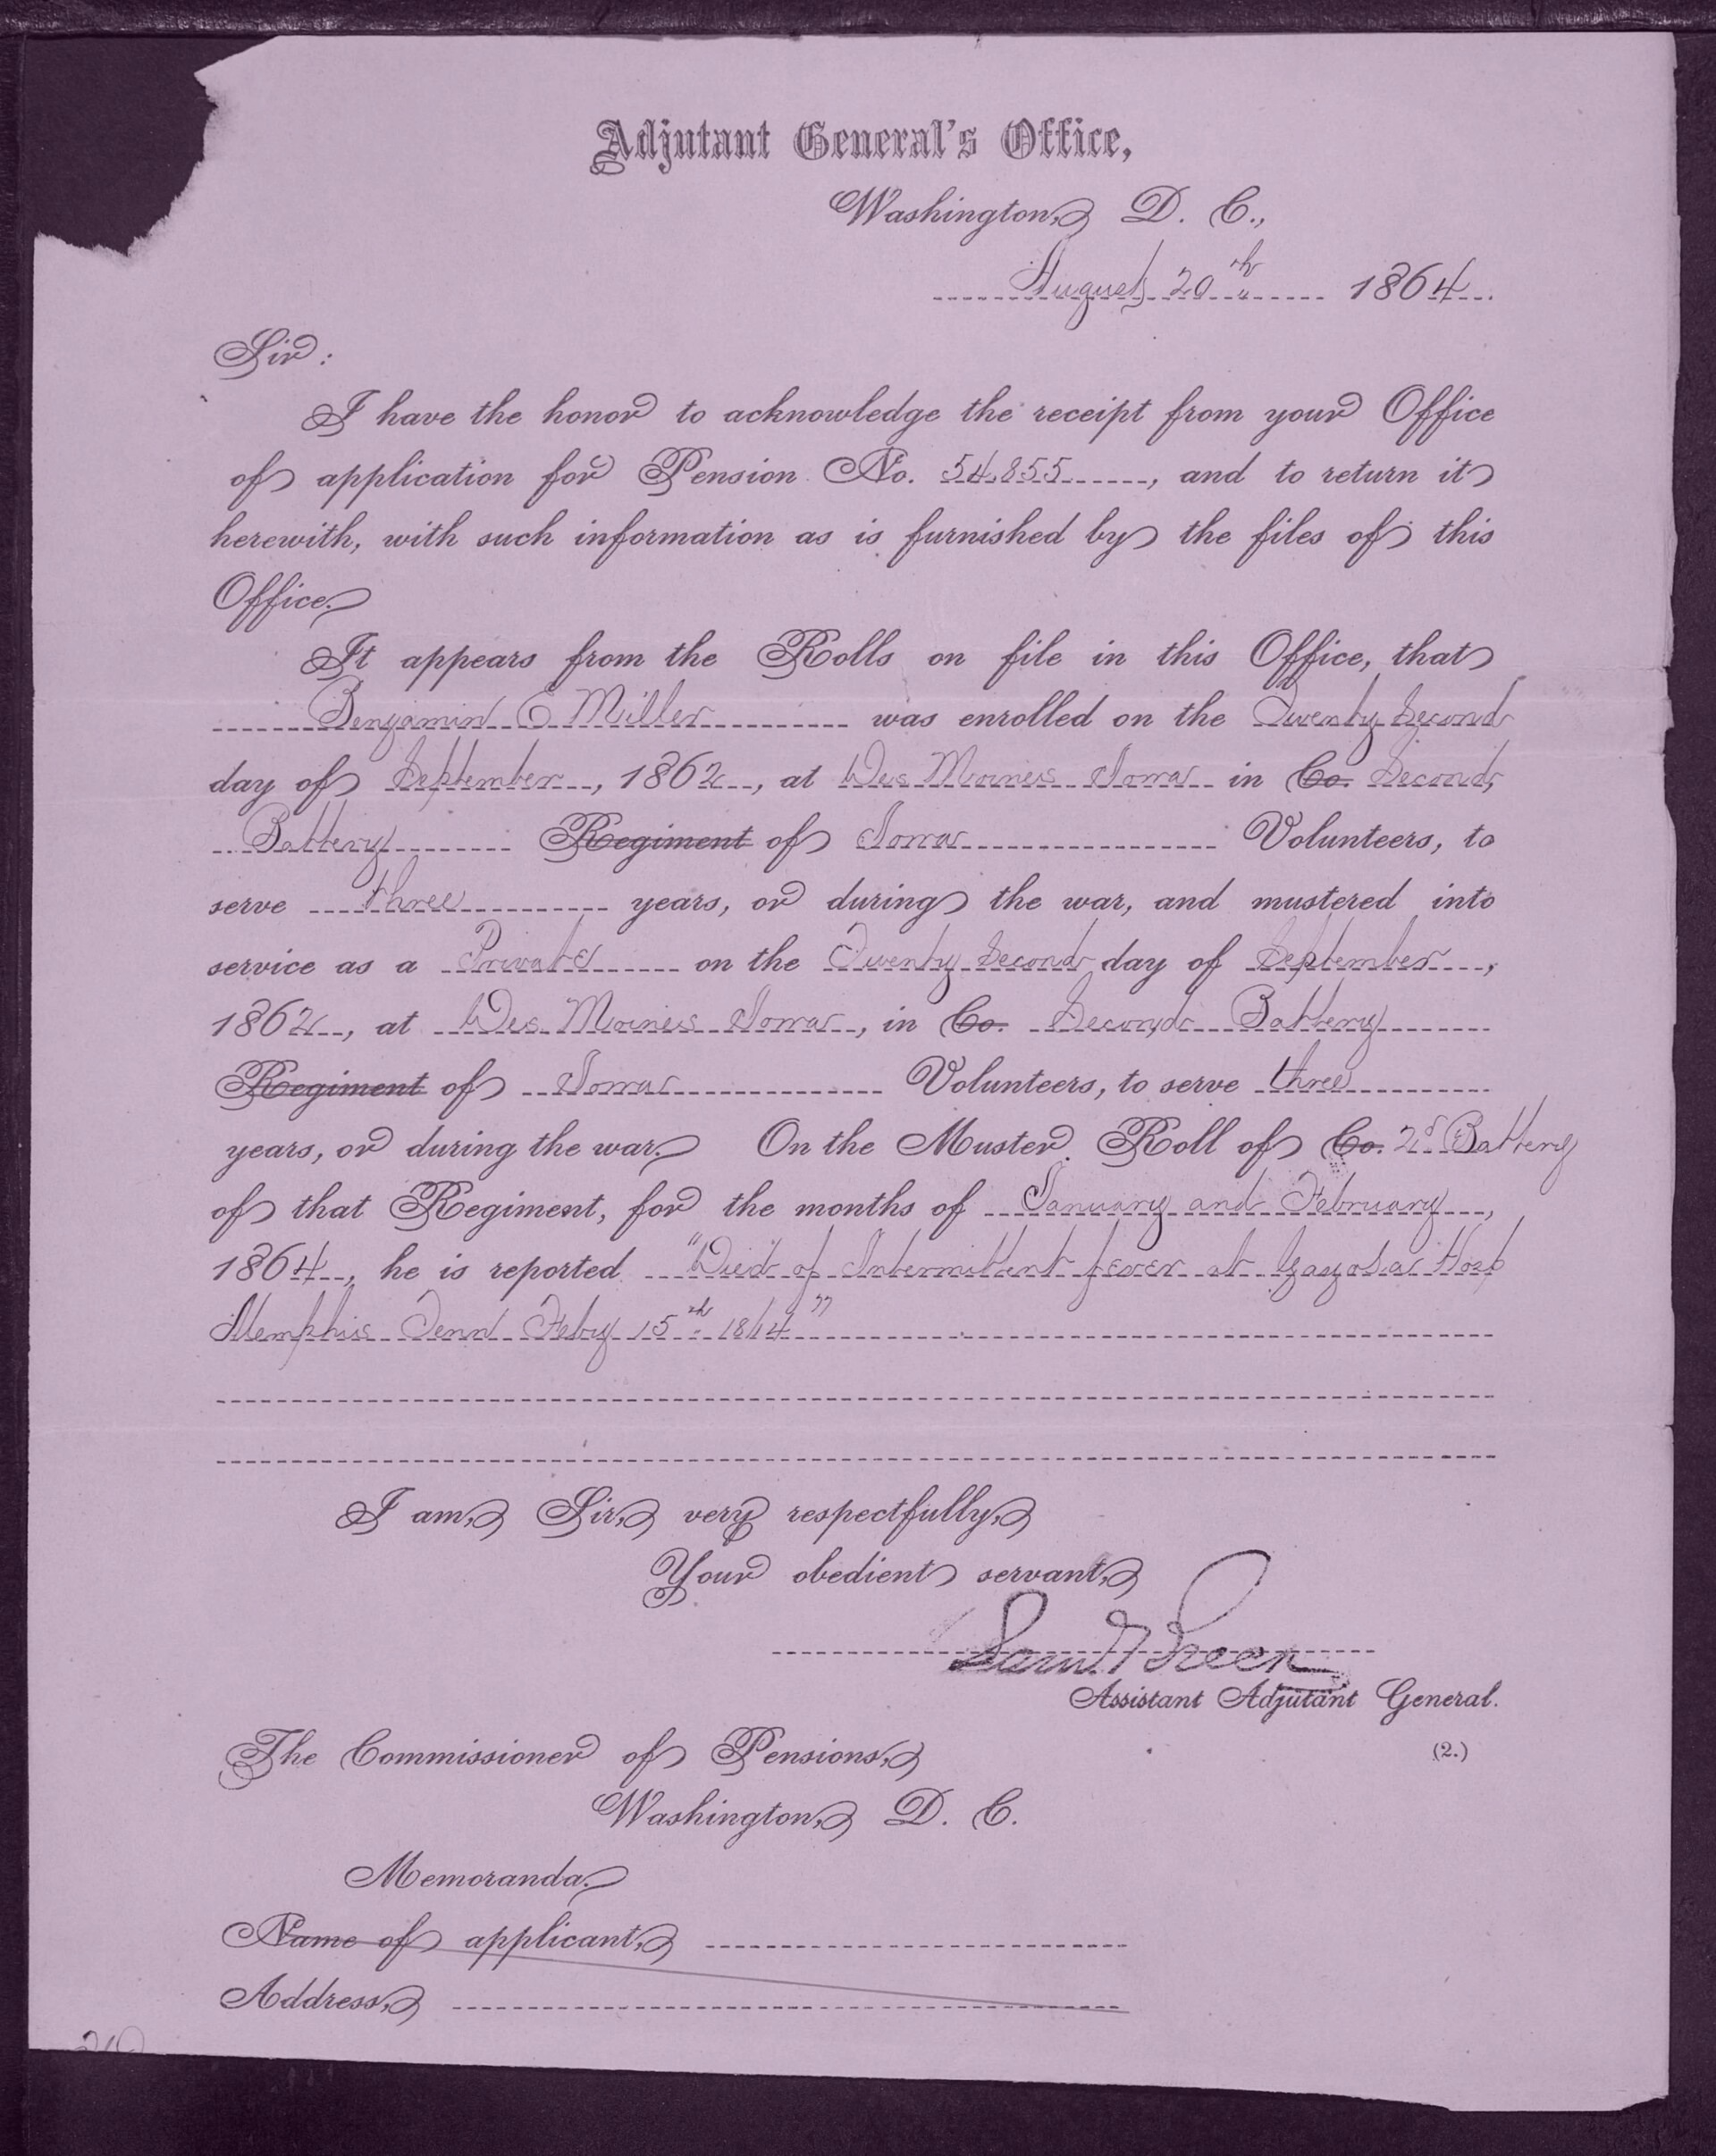 Adjutant General's Office,
Washington, D. C.,
August 20th 1864.
Sir:
I have the honor to acknowledge the receipt from your Office
of application for Pension No. 54,855, and to return it
herewith, with such information as is furnished by the files of this
Office.
It appears from the Rolls on file in this Office, that
Benjamin O Miller was enrolled on the Twenty Second
day of September, 1862, at Des Moines Iowa in Co. Second,
Battery Regiment of Iowa Volunteers, to
serve three years, or during the war, and mustered into
service as a Private on the Twenty Second day of September,
1862, at Des Moines Iowa, in Co. Second Battery
Regiment of Iowa Volunteers, to serve three
years, or during the war. On the Muster Roll of Co. 2d Battery
of that Regiment, for the months of January and February,
1864, he is reported "Died of Intermittent fever at Gayosa Hosp
Memphis Tenn Feby 15th 1864"
I am, Sir, very respectfully,
Your obedient servant,
Saml Breck
Assistant Adjutant General.
The Commissioner of Pensions, (2.)
Washington, D. C.
Memoranda.
Name of applicant,
Address,